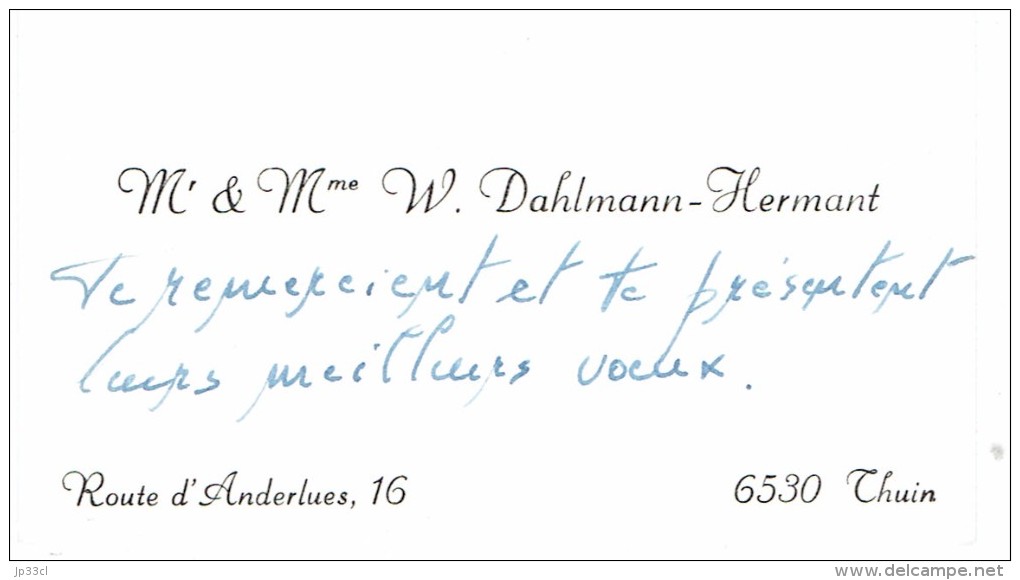 Mr & Mme W. Dahlmann-Hermant
Te remercient et te présentent
leurs meilleurs voeux.
Route d'Anderlues, 16 6530 Thuin
jp33cl www.delcampe.net